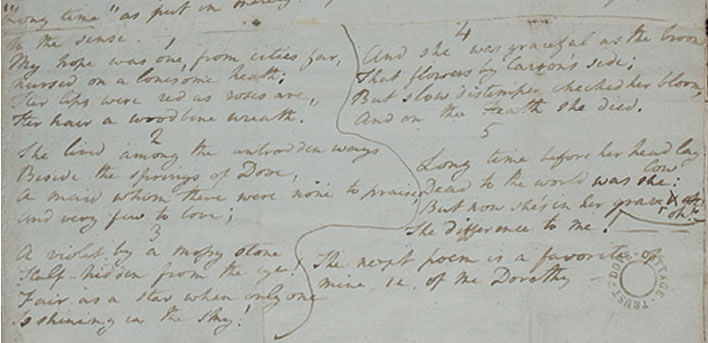 "Long time" as put in merely
to the sense.
1
My hope was one, from cities far,
nursed on a lonesome heath;
Her lips were red as roses are,
Her hair a woodbine wreath.
2
She lived among the untrodden ways
Beside the springs of Dove,
A maid whom there were none to praise,
And very few to love;
3
A violet by a mossy stone
Half-hidden from the eye!
Fair as a star when only one
Is shining in the sky!
4
And she was graceful as the broom
That flowers by Carron's side;
But slow distemper checked her bloom,
And on the Heath she died.
5
Long time before her head lay low
Dead to the world was she:
But now she's in her grave, & oh!
The difference to me!
The next poem is a favorite of
mine i.e. of me Dorothy —
DOVE COTTAGE · TRUST ·